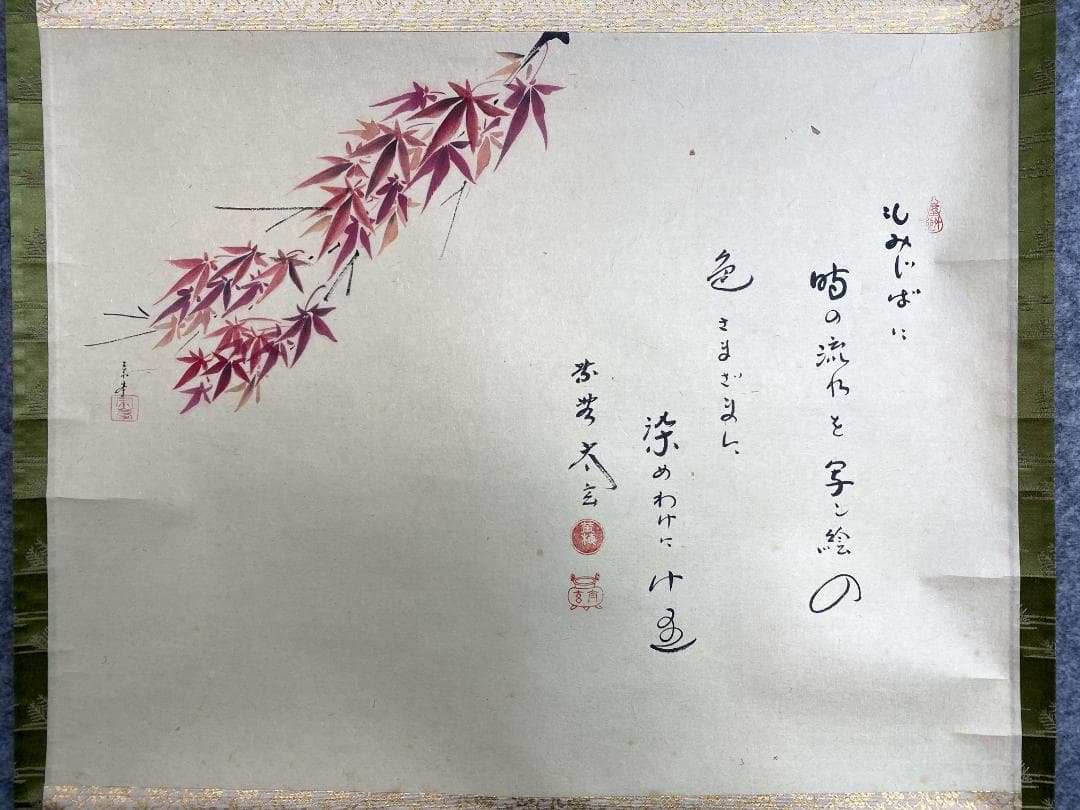 もみじばに
時の流れを写し絵の
色さまざまに
染めわけにけ
太玄
黄梅